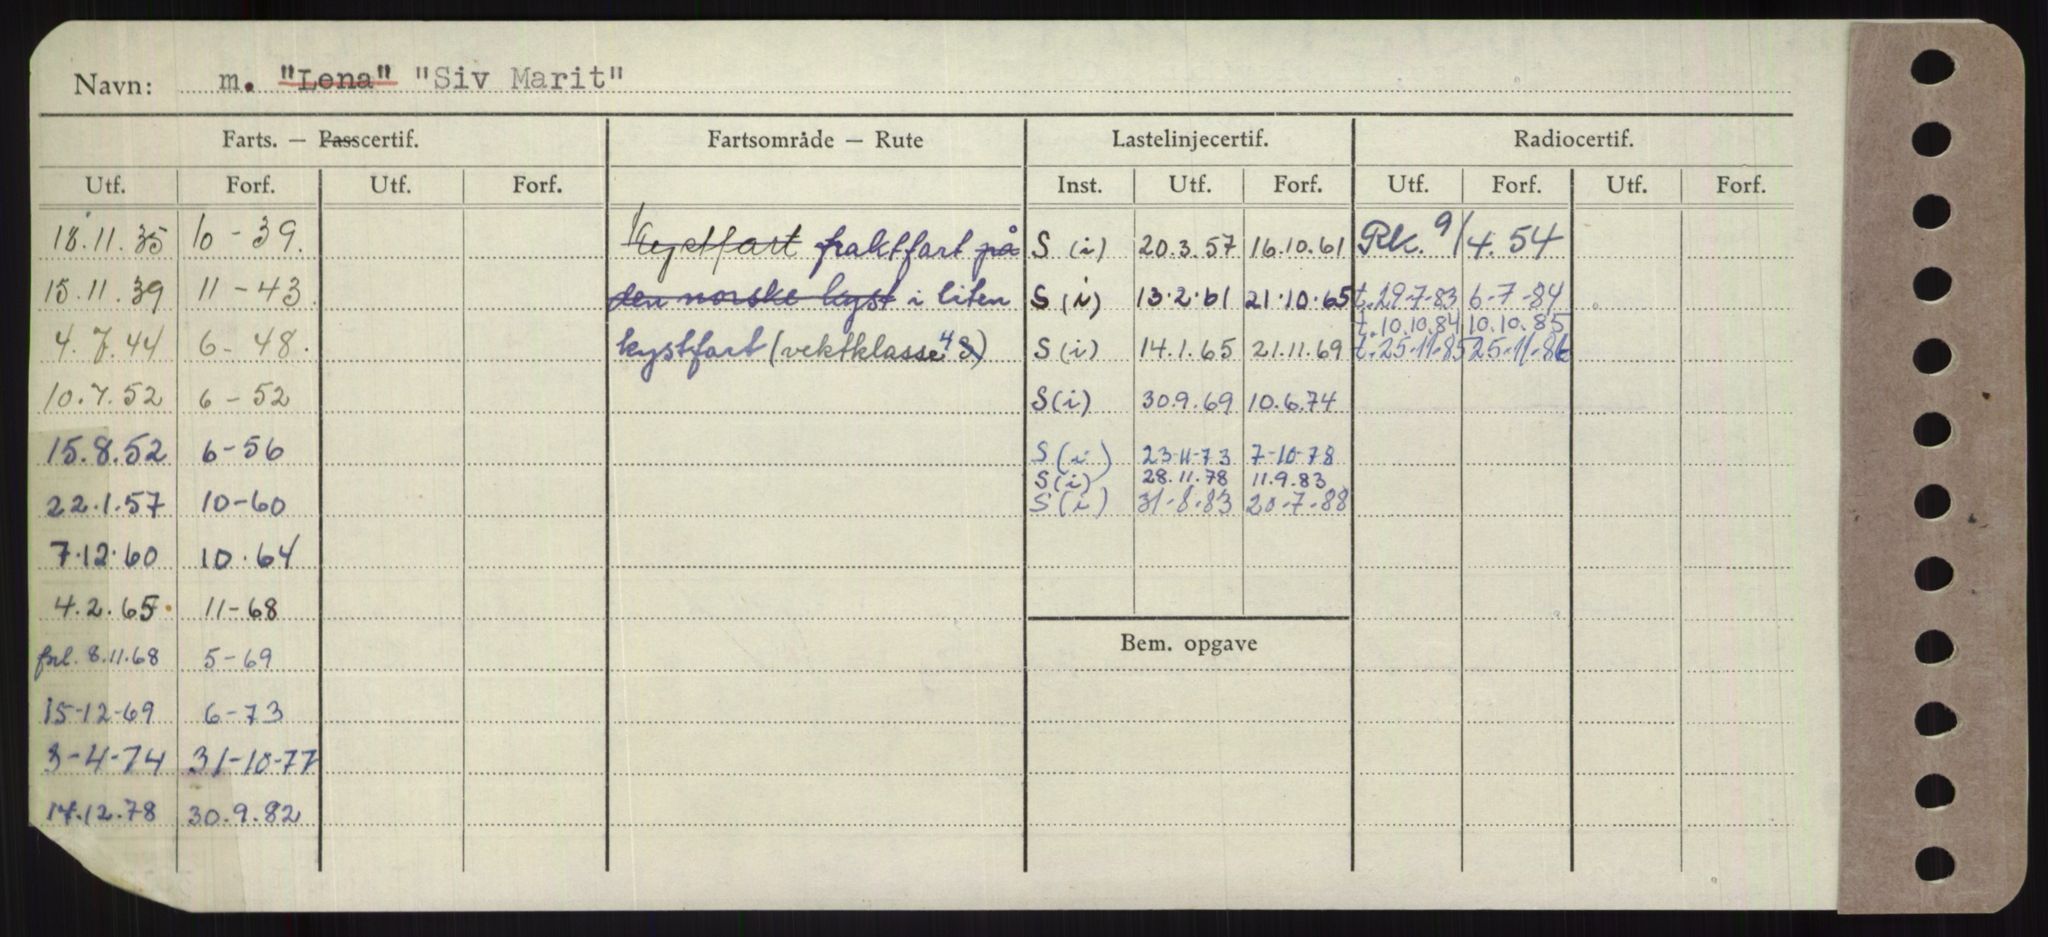 Navn: m. "Lena" "Siv Marit"
Farts. — Passcertif. Fartsområde — Rute Lastelinjecertif. Radiocertif.
Utf. Forf. Utf. Forf. Inst. Utf. Forf. Utf. Forf. Utf. Forf.
18.11.35 10-39. Kystfart fraktfart på S (i) 20.3.57 16.10.61 Rk. 9/4.54
15.11.39 11-43. den norske kyst i liten S (i) 13.2.61 21.10.65 t.29-7-83 6-7-84
t.10.10.84 10.10.85
4.7.44 6-48. kystfart (vektklasse 4 S) S (i) 14.1.65 21.11.69 t.25-11-85 25-11-86
10.7.52 6-52 S (i) 30.9.69 10.6.74
15.8.52 6-56 S (i) 23-11-73 7-10-78
S (i) 28.11.78 11.9.83
22.1.57 10-60 S (i) 31-8-83 20-7-88
7.12.60 10.64
4.2.65 11-68
Bem. opgave
forl. 8.11.68 5-69
15-12-69 6-73
3-4-74 31-10-77
14.12.78 30.9.82